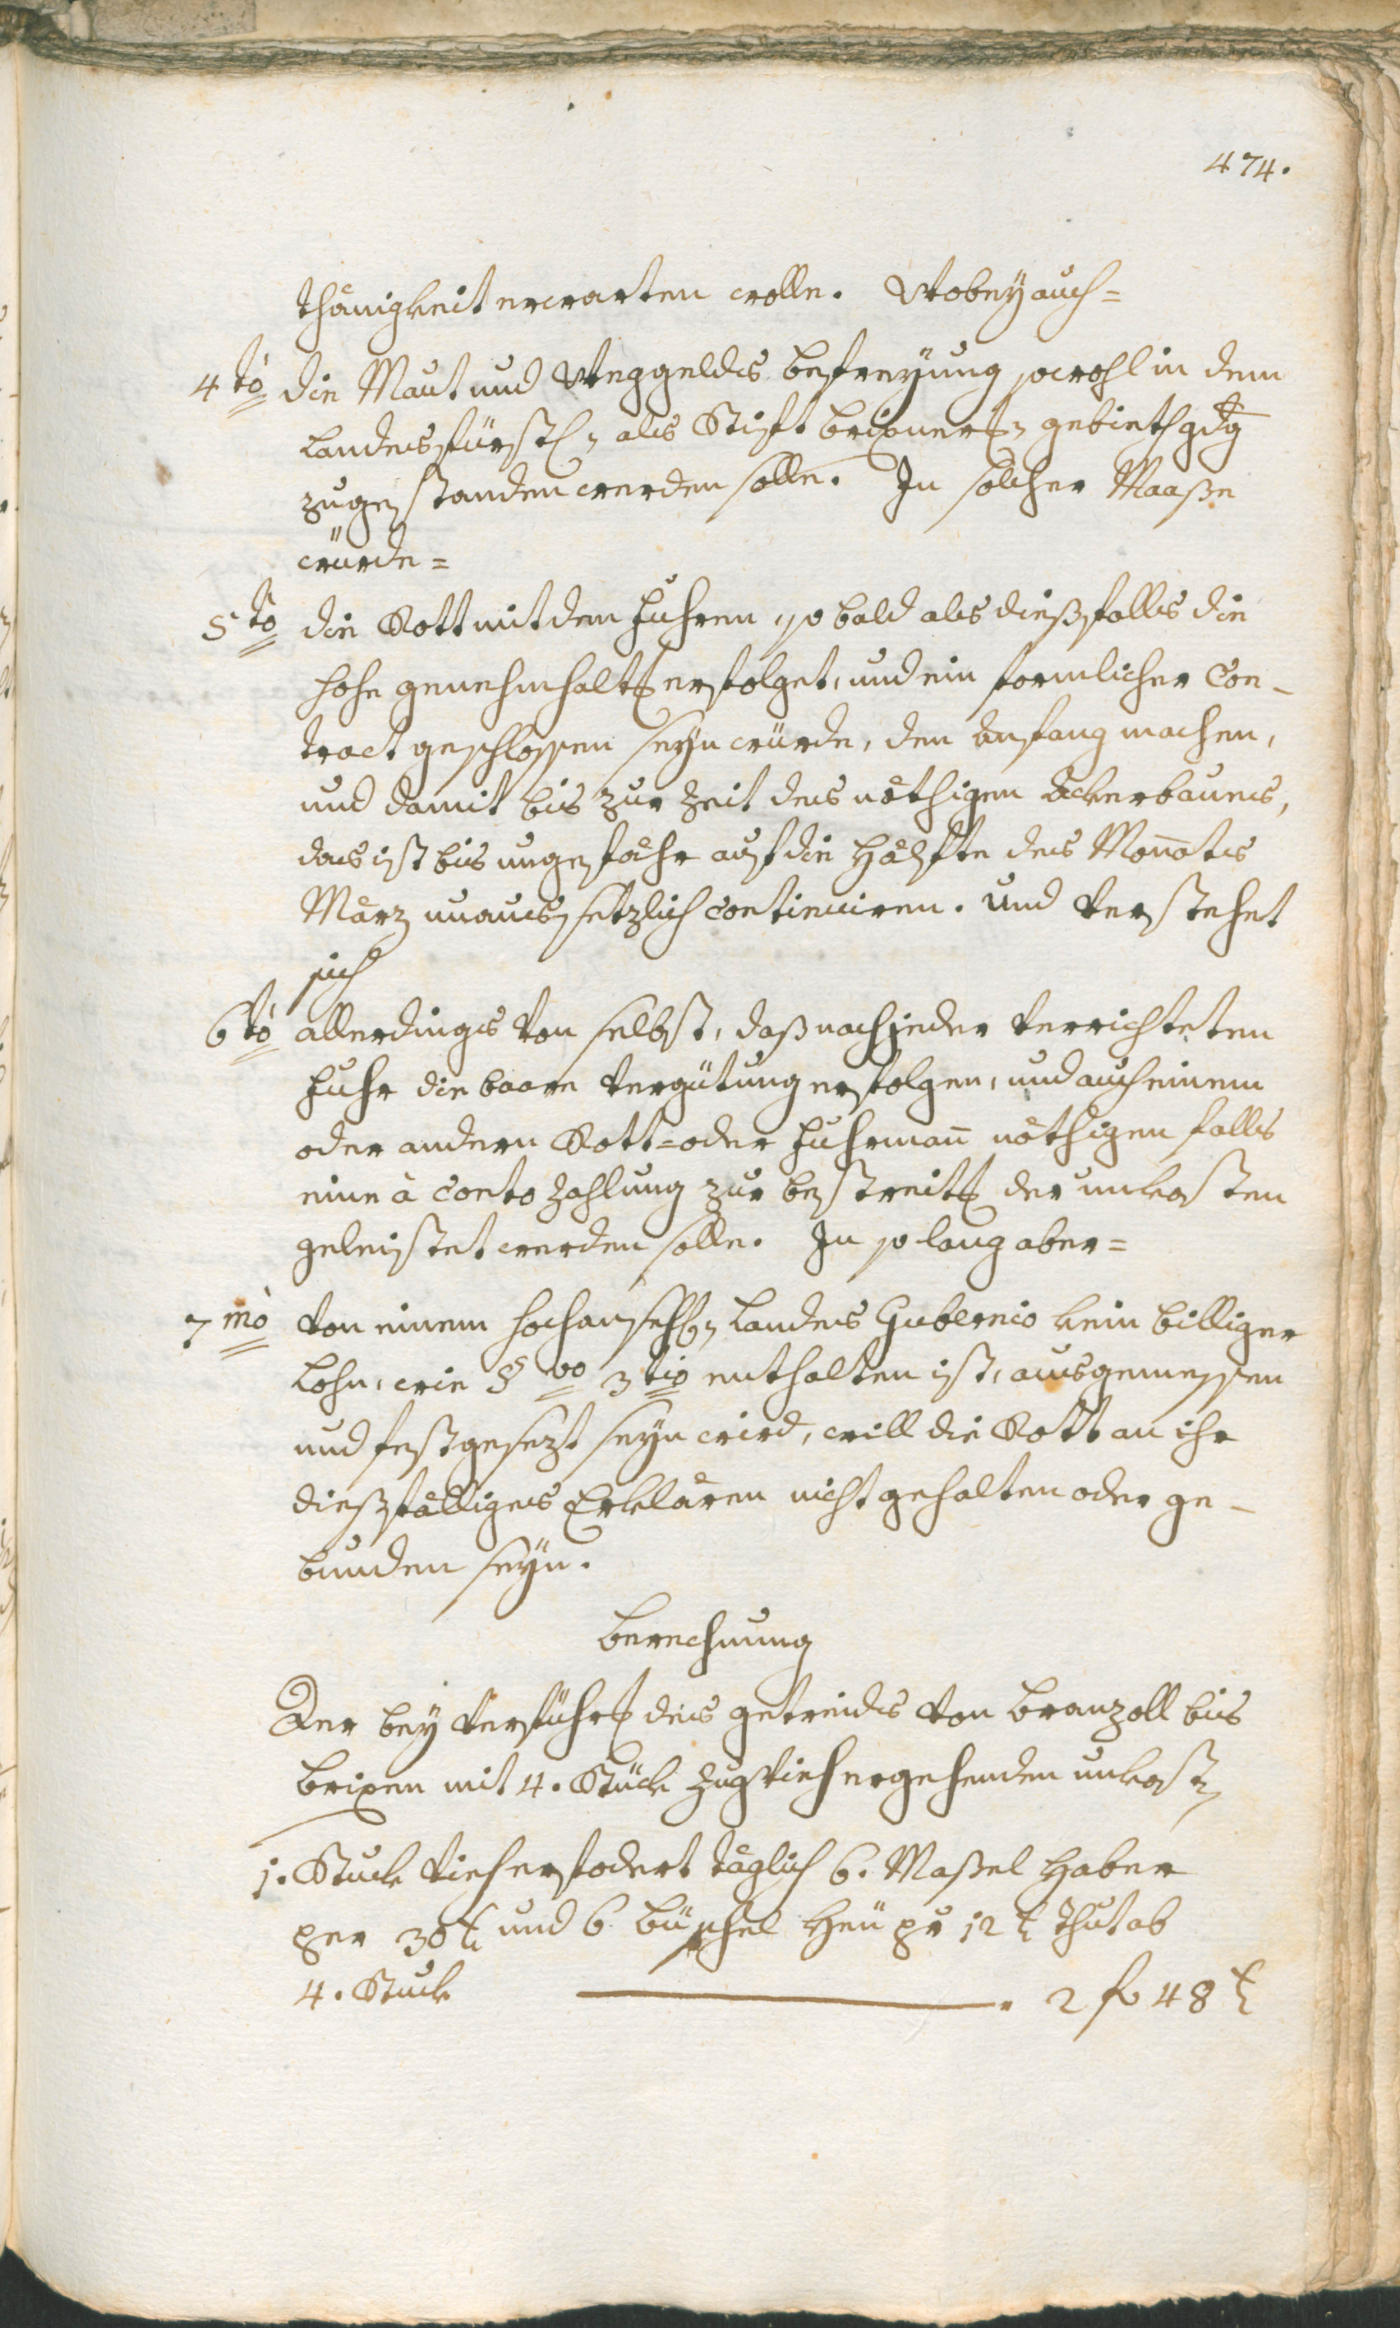 474.
thänigkeit erwarten wolle. Wobey auch=
4to die Maut und Weggelds befreyung sowohl in dem
Landesfürstl: als Stift brixnerischen gebieth gdg
zugestanden werden solle. In solcher Maaße
würde=
5to die Rott mit dem fuhren, so bald als dießfalls die
hohe genehmhaltg erfolget, und ein formlicher Con-
tract geschlossen seyn würde, den anfang machen,
und damit bis zur Zeit des nöthigen ackerbaues,
das ist bis ungefähr auf die Hälfte des Monats
März unaussetzlich continuiren. Und verstehet
sich
6to allerdings von selbst, daß nach jeder verrichteten
fuhr die baare vergütung erfolgen, und auch einem
oder andern Rott= oder fuhrman̄ nöthigen falls
eine à Conto Zahlung zur bestreitg der unkosten
geleistet werden solle. In so lang aber=
7mò von einem hochansehl: Landes Gubernio kein billiger
Lohn, wie § vo 3tio enthalten ist, ausgemessen
und festgesezt seyn wird, will die Rott an ihr
dießfälliges Erklären nicht gehalten oder ge-
bunden seyn.
Berechnung
Der bey verführg des getreids von branzoll bis
brixen mit 4. Stück Zugvieh ergehenden unkosten
1. Stuck vieh erfodert täglich 6. Maßel Haber
per 30 x und 6 büschel Heu pr 12 x thut ab
4. Stuck . 2 f 48 x